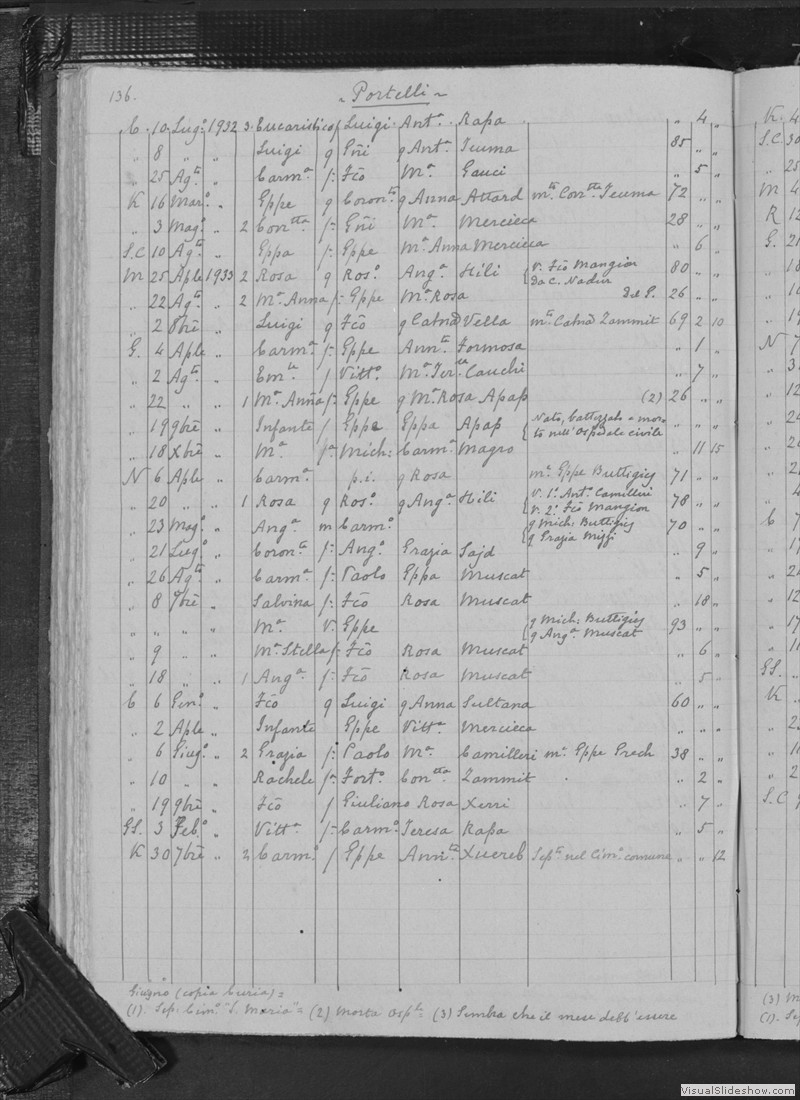 136.
"Portelli"
C. 10 Lugo 1932 3. Eucaristico f. Luigi Anta Rapa " 4 "
" 8 " " Luigi g Gñi g Anta Teuma 85 " "
" 25 Agto " Carma f. Fco Ma Gauci " 5 "
K 16 Maro " Gppe g Coronto g Anna Attard mto Contta Teuma 72 " "
" 3 Mago " 2 Contta f. Gñi Ma Mercieca 28 " "
S.C 10 Agto " Gppa f. Gppe Ma Anna Mercieca " 6 "
M 25 Aple 1933 2 Rosa g Roso Anga Hili { v. Fco Mangion da C. Nadur 80 " "
" 22 Agto " 2 Ma Anna f. Gppe Ma Rosa del P. 26 " "
" 2 8bre " Luigi g Fco g Catna Vella mto Catna Zammit 69 2 10
G. 4 Aple " Carmo f. Gppe Annta Formosa " 1 "
" 2 Agto " Emle f Vitto Ma Tersa Cauchi " 7 "
" 22 " " 1 Ma Anna f. Gppe g Ma Rosa Apap (2) 26 " "
" 19 9bre " Infante f Gppe Gppa Apap { Nato, battezzato e morto nell'Ospedale civile
" 18 Xbre " Ma fa Mich: Carma Magro " 11 15
N 6 Aple " Carma p.i. g Rosa ma Gppe Buttigieg 71 " "
" 20 " " 1 Rosa g Roso g Anga Hili { v. 1o. Anto Camilleri v. 2o. Fco Mangion 78 " "
" 23 Mago " Anga m Carmo { g Mich: Buttigieg g Grazia Mizzi 70 " "
" 21 Lugo " Coronta f. Ango Grazia Sajd " 9 "
" 26 Agto " Carma f. Paolo Gppa Muscat " 5 "
" 8 7bre " Salvina f. Fco Rosa Muscat " 18 "
" " " " Ma v. Gppe { g Mich: Buttigieg g Anga Muscat 93 " "
" 9 " " Ma Stella f. Fco Rosa Muscat " 6 "
" 18 " " 1 Anga f. Fco Rosa Muscat " 5 "
C 6 Geno " Fco g Luigi g Anna Sultana 60 " "
" 2 Aple " Infante Gppe Vitta Mercieca " " "
" 6 Giugo " 2 Grazia f. Paolo Ma Camilleri ma Gppe Grech 38 " "
" 10 " " Rachele fa Forto Contta Zammit " 2 "
" 19 9bre " Fco f Giuliano Rosa Xerri " 7 "
GS. 3 Febo " Vitta f. Carmo Teresa Rapa " 5 "
K 30 7bre " 2 Carmo f Gppe Annta Xuereb Septo nel Cimo comune " " 12
Giugno (copia Curia) =
(1). Sep. Cimo "S. Maria" = (2) Morta Osple (3) Sembra che il mese debb'essere
VisualSlideshow.com